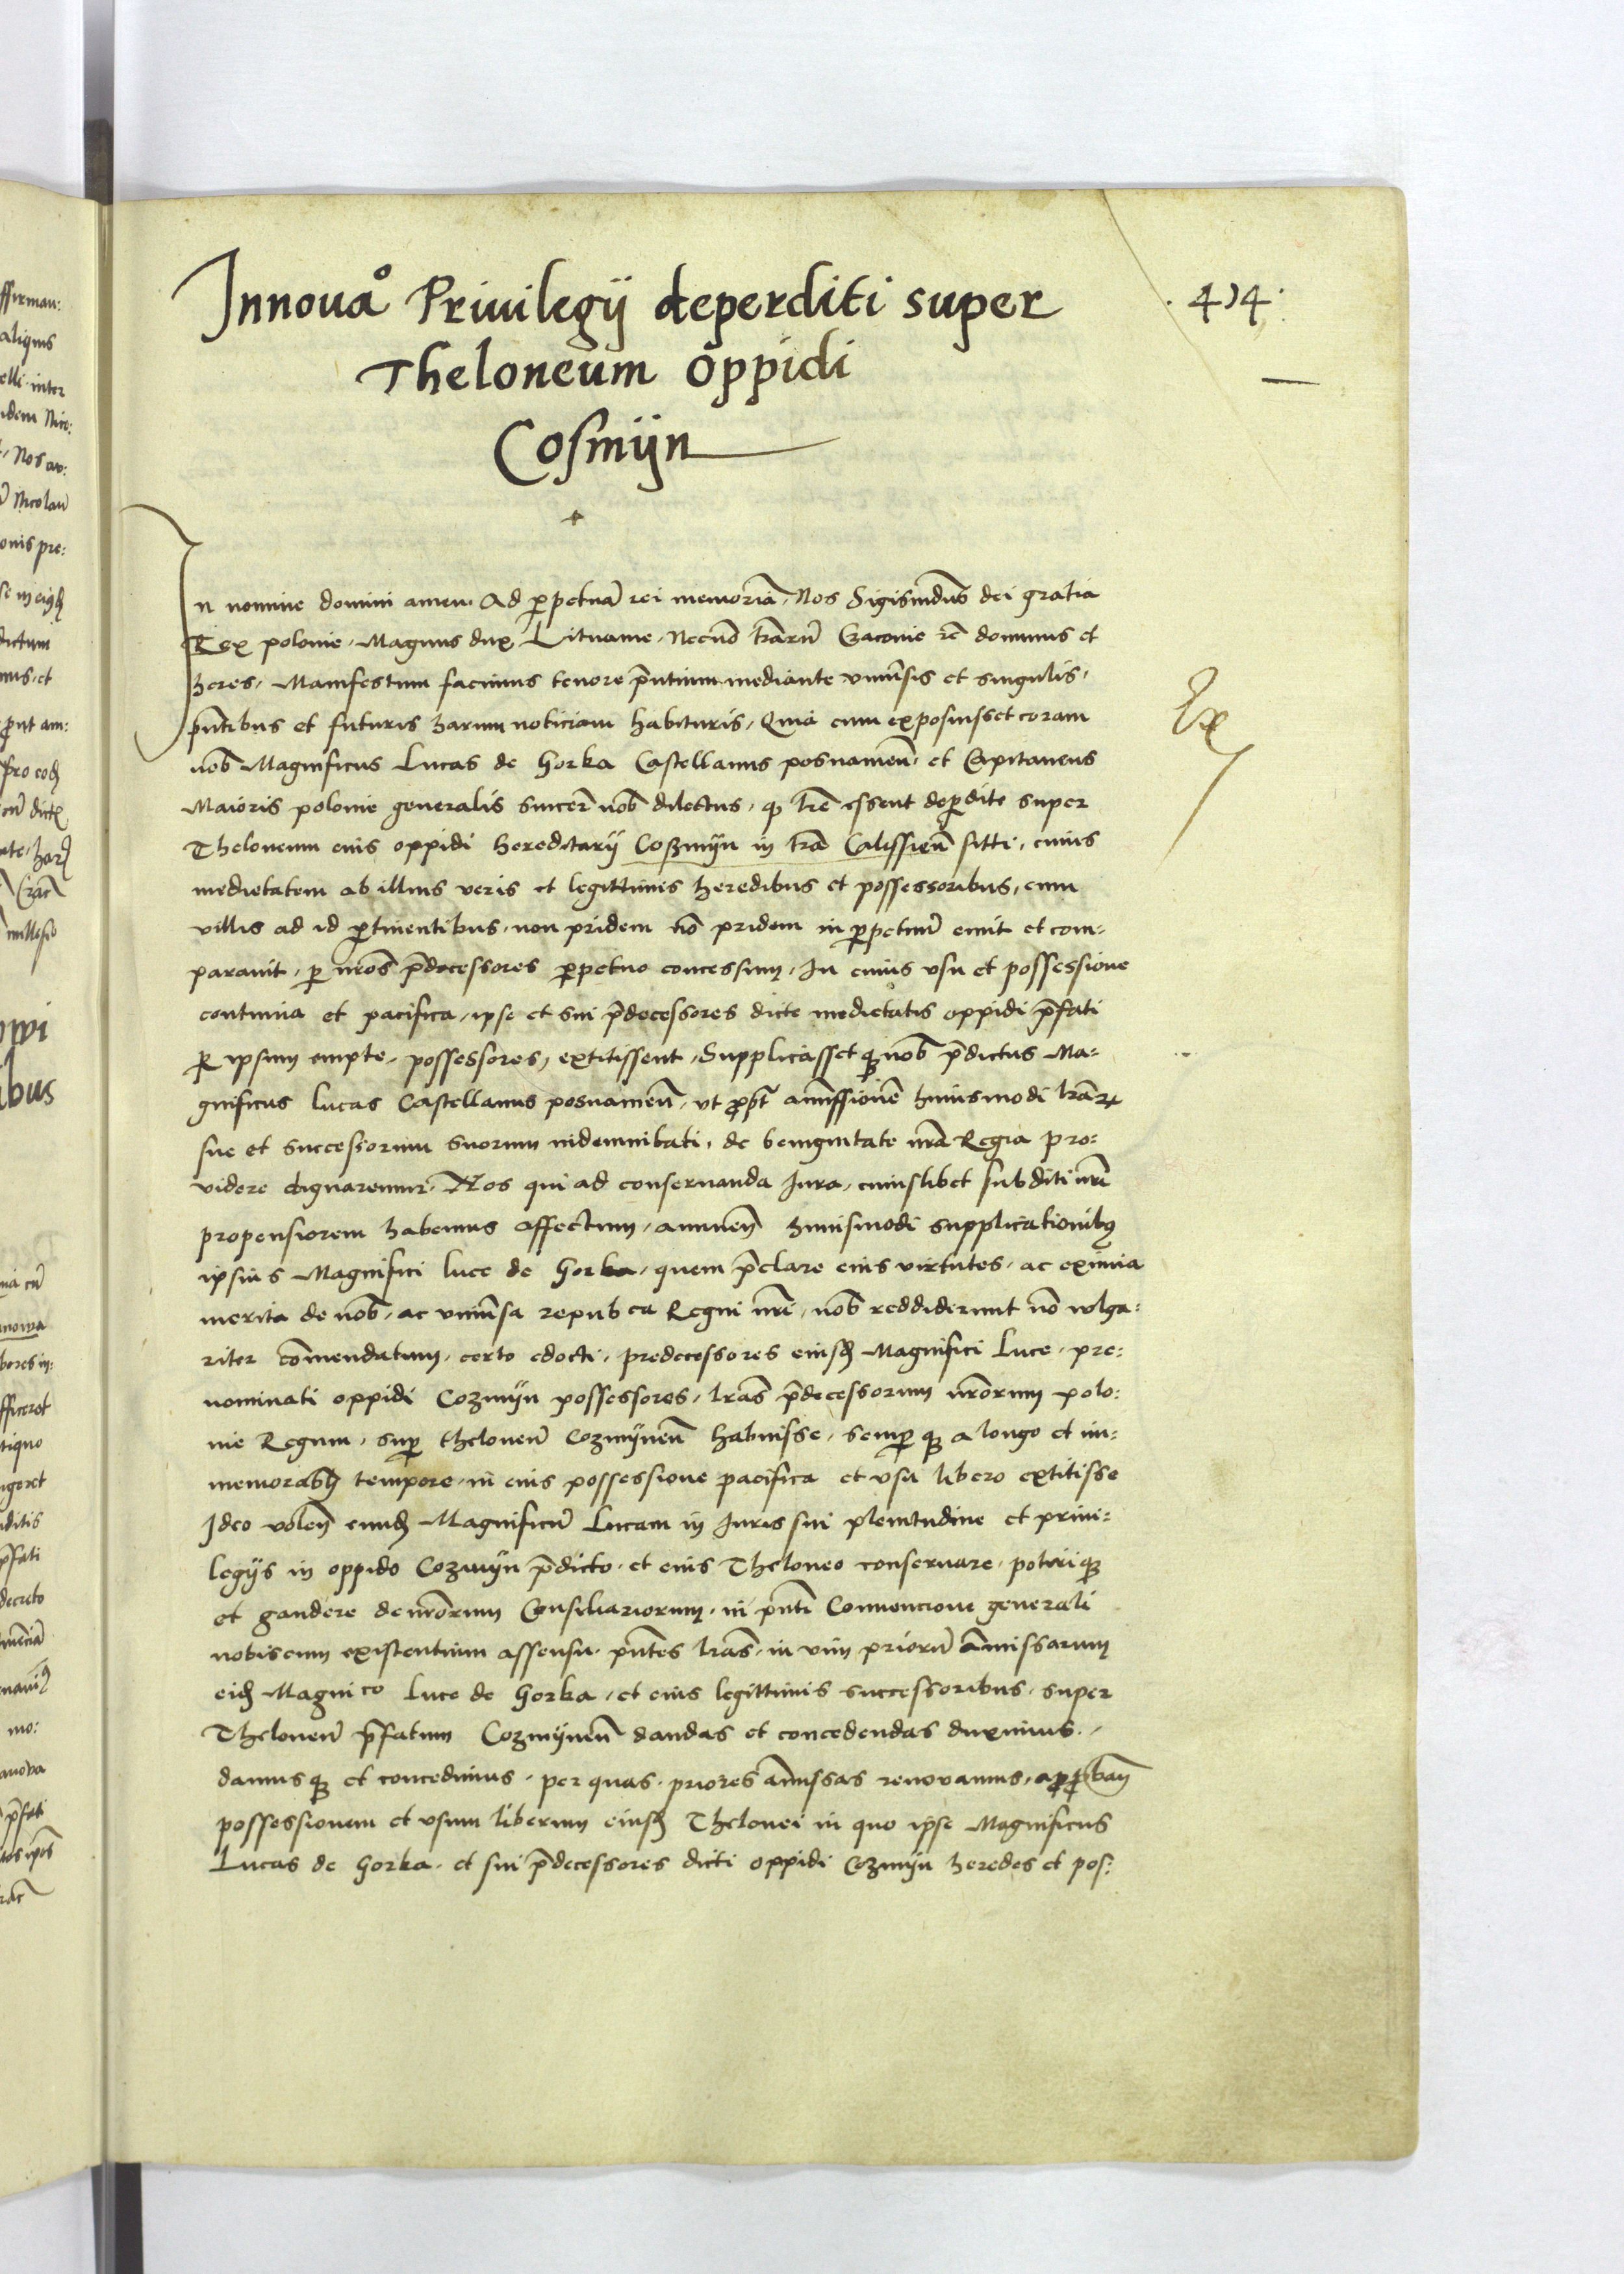 Innoua° Priuilegij deperditi super
Theloneum oppidi
Cosmijn
·414·
In nomine domini amen. Ad p̱petuā rei memoriā. Nos Sigismūdus dei gratia
Rex polonie. Magnus dux Lituanie. Necnō tr̄arū Cracouie ec̄ dominus et
heres. Manifestum facimus tenore p̄ntium mediante vniūsis et singulis,
p̄ntibus et futuris harum noticiam habituris. Quia cum exposuisset coram
nob̄ Magnificus Lucas de Gorka Castellanus posnanien̄. et Capitaneus
Maioris polonie generalis sincer̄ nob̄ dilectus. qȝ lr̄e essent dep̱dite super
Theloneum eius oppidi hereditarij Coszmijn in tr̄a Calissien̄ sitti, cuius
medietatem ab illius veris et legittimis heredibus et possessoribus, cum
villis ad id p̱tinentibus. non pridem nō pridem in p̱petuū emit et com-
parauit. p̱ nr̄os p̄decessores p̱petuo concessum. In cuius vsu et possessione
continua et pacifica, ipse et sui p̄decessores dicte medietatis oppidi p̄fati
P̱ ipsum empte, possessores, extitissent. Supplicassetqȝ nob̄ p̄dictus Ma-
gnificus Lucas Castellanus posnanien̄. vt ꝓpt̄ amissionē huiusmodi lr̄arꝝ
sue et successorum suorum indemnitati, de benignitate nr̄a Regia pro:
videre dignaremur. Nos qui ad conseruanda Iura, cuiuslibet subditi nr̄i
propensiorem habemus affectum, annuen̄ huiusmodi supplicationibꝰ
ipsius Magnifici luce de Gorka, quem p̄clare eius virtutes, ac eximia
merita de nob̄, ac vniūsa repub ca Regni nr̄i, nob̄ reddiderunt nō volga:
riter cōmendatum, certo edocti, predecessores eiusd̄ Magnifici Luce, pre:
nominati oppidi Cozmijn possessores, lr̄as p̄decessorum nr̄orum polo:
nie Regum, sup̱ theloneū Cozmijnen̄ habuisse, semp̱qȝ a longo et im:
memorabłi tempore, in eius possessione pacifica et vsu libero extitisse
Ideo volen̄ eund̄ Magnificū Lucam in Iuris sui plenitudine et priui:
legijs in oppido Cozmijn p̄dicto, et eius Theloneo conseruare, potiriqȝ
et gaudere de nr̄orum Consiliariorum, in p̄nti Conuencione generali
nobiscum existentium assensu, p̄ntes lr̄as, in vim priorū amissarum
eid̄ Magni co Luce de Gorka, et eius legittimis successoribus, super
Theloneū p̄fatum Cozmijnen̄ dandas et concedendas duximus.
damusqȝ et concedimus, per quas, priores amissas renouamus, apꝓban̄
possessionem et vsum liberum eiusd̄ Thelonei in quo ipse Magnificus
Lucas de Gorka, et sui p̄decessores dicti oppidi Cozmijn heredes et pos: